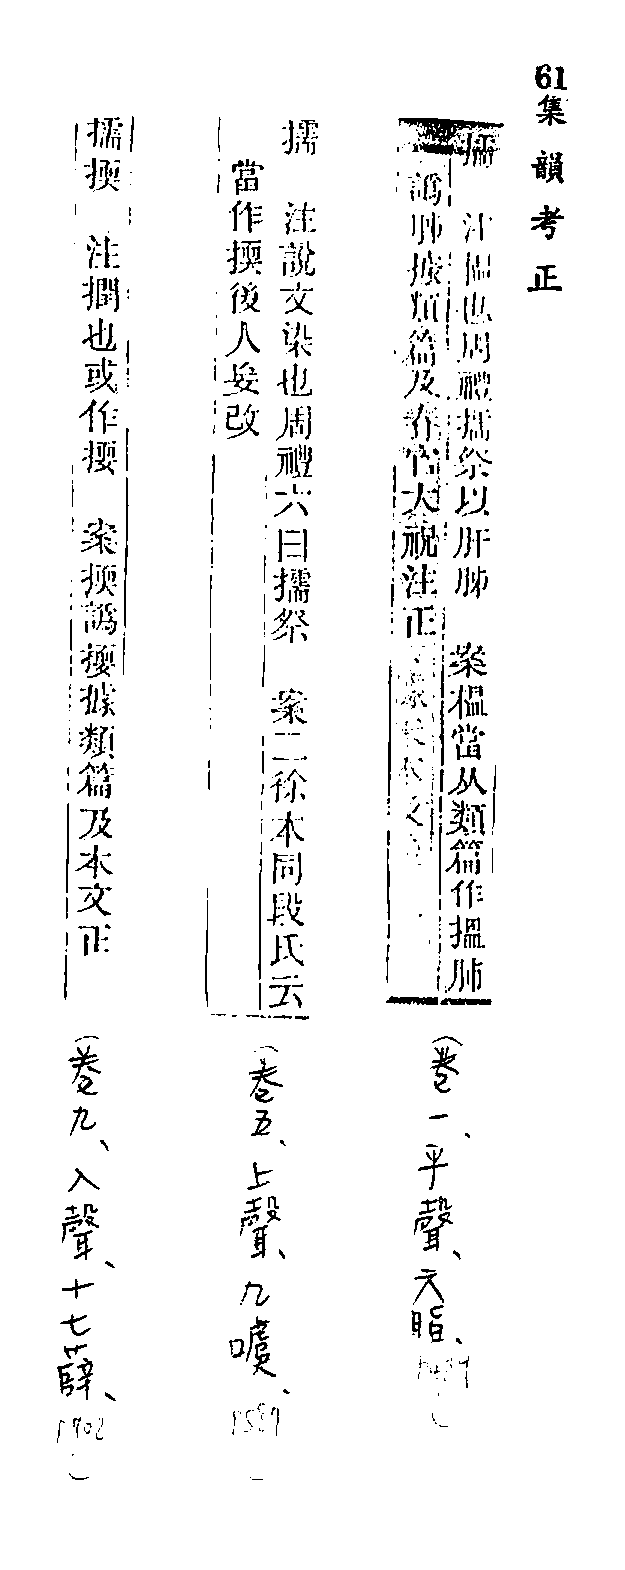 61集韻考正
擩　注揾也周禮擩祭以肝肺　案榅當从類篇作搵肺
譌肺據類篇及春官大祝注正
（卷一、平聲、六脂、
擩　注說文染也周禮六曰擩祭　案二徐本同段氏云
當作擩後人妄改
（卷五、上聲、九噳、1557
擩擩　注捫也或作㨎　案㨎譌㨎據類篇及本文正
（卷九、入聲、十七薛、1702）